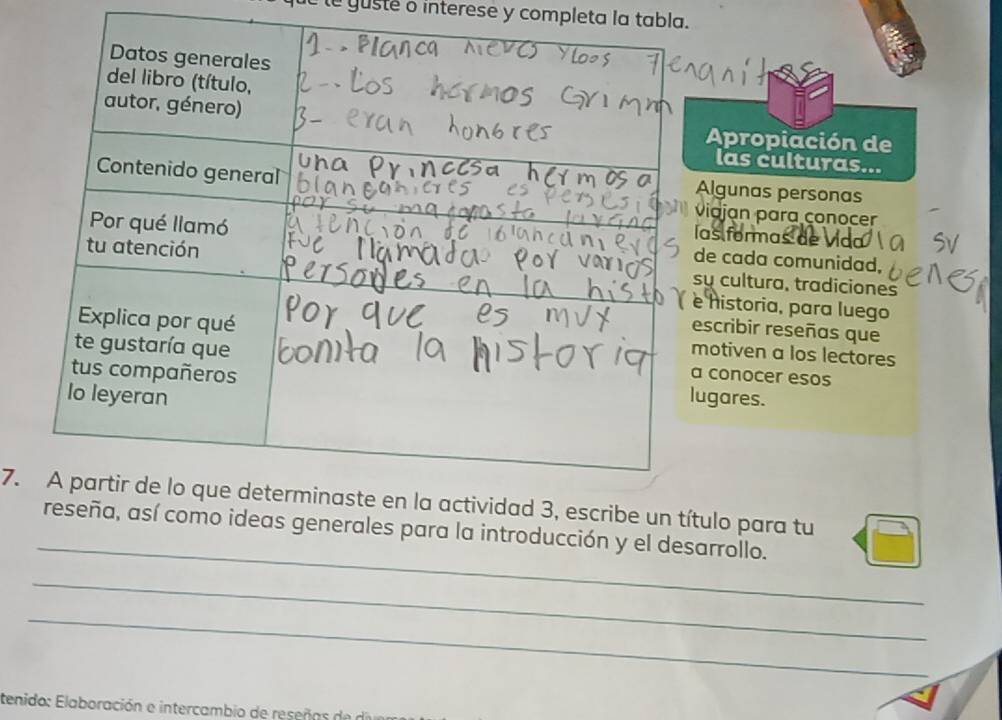 te guste o interese y completa la tabla.
Datos generales
del libro (título,
autor, género)
1.. Blanca nieves yloos 7enanitos
2-. Los hermos Grimm
3- eran honbres
Contenido general
una princesa hermosa
blancanieres es persesi
por su
Por qué llamó
tu atención
atención de blancanieves
fue llamada por varios
persodes en la histo
Explica por qué
te gustaría que
tus compañeros
lo leyeran
por que es muy
bonita la historia
Apropiación de
las culturas...
Algunas personas
viajan para conocer
las formas de vida
de cada comunidad,
su cultura, tradiciones
e historia, para luego
escribir reseñas que
motiven a los lectores
a conocer esos
lugares.
7. A partir de lo que determinaste en la actividad 3, escribe un título para tu
reseña, así como ideas generales para la introducción y el desarrollo.
tenido: Elaboración e intercambio de reseñas de